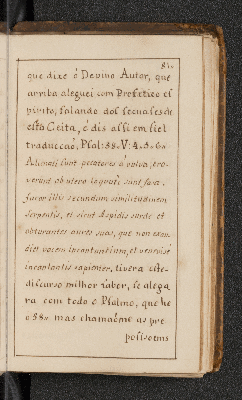 81.
que dixe o Devino Autor, que
arriba aleguei com Profetico es
pirito, falando dos secuases de
esta Ceita, é dis assi em fiel
traduccaõ, Psal: 58. V: 4. 5. 6.
Alienati sunt pecatores á vulva, erra
verunt ab utero loquuti sunt falsa,
furor illis secundum similitudinem
serpentis, et sicut Aspidis surde et
obturantes aures suas, que non exau
diet vocem incantantium, et venefisi
incantantis sapienter, tivera este
discurso milhor saber, se alega
ra com todo o Psalmo, que he
o 58. mas chamaõme as pre
posisoems